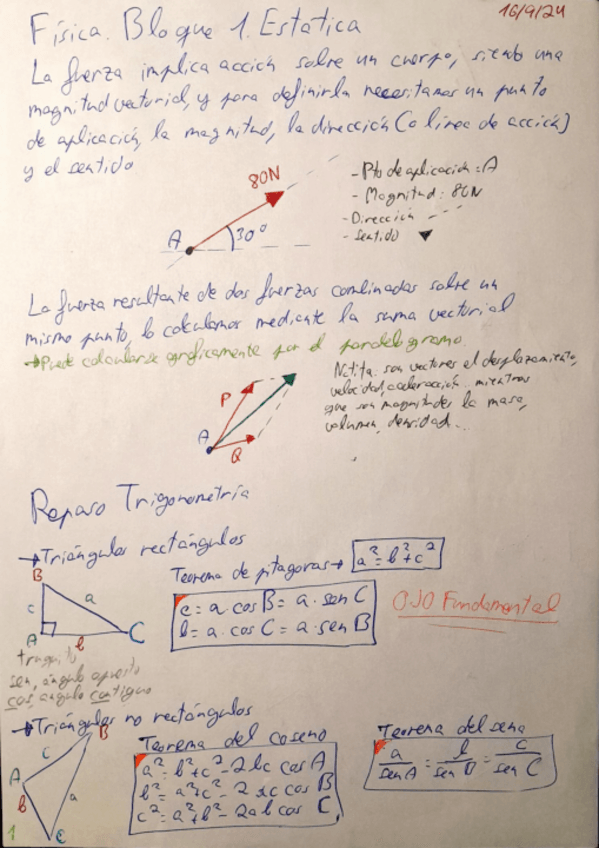 16/9/24
Física. Bloque 1. Estática
La fuerza implica acción sobre un cuerpo, siendo una
magnitud vectorial, y para definirla necesitamos un punto
de aplicación, la magnitud, la dirección (o línea de acción)
y el sentido
80N
A
30°
- Pto de aplicación: A
- Magnitud: 80N
- Dirección
- sentido
La fuerza resultante de dos fuerzas combinadas sobre un
mismo punto, lo calculamos mediante la suma vectorial
→ Puede calcularse gráficamente por el paralelogramo.
P
A
Q
Notita: son vectores el desplazamiento,
velocidad, aceleración... mientras
que son magnitudes la masa,
volumen, densidad...
Repaso Trigonometría
→ Triángulos rectángulos
B
c
a
A
b
C
Teorema de pitagoras → a² = b² + c²
c = a cos B = a · sen C
b = a · cos C = a · sen B
OJO Fundamental
truquito
sen, ángulo opuesto
cos, ángulo contiguo
→ Triángulos no rectángulos
B
c
A
a
b
C
Teorema del coseno
a² = b² + c² - 2bc cos A
b² = a² + c² - 2ac cos B
c² = a² + b² - 2ab cos C
Teorema del seno
a/sen A = b/sen B = c/sen C
1